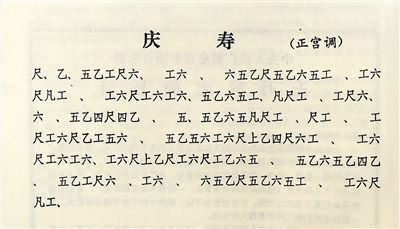 庆 寿 (正宫调)
尺、乙、五乙工尺六、 工六 、 六五乙尺五乙六五工 、工六
尺凡工 、 工六尺工六工六、五乙六五工、凡尺工 、工尺六、
六 、五乙四尺四乙 、 五、五乙六五凡尺工 、尺工 、 工
尺工六尺乙工五六 、 五乙五六工尺六上乙四尺工六 、 工六
尺工六工六、工尺六上乙尺工六尺工乙六五 、 五乙六五乙四乙
、 五乙工尺六 、工六 、 六五乙尺五乙六五工 、 工六尺
凡工、